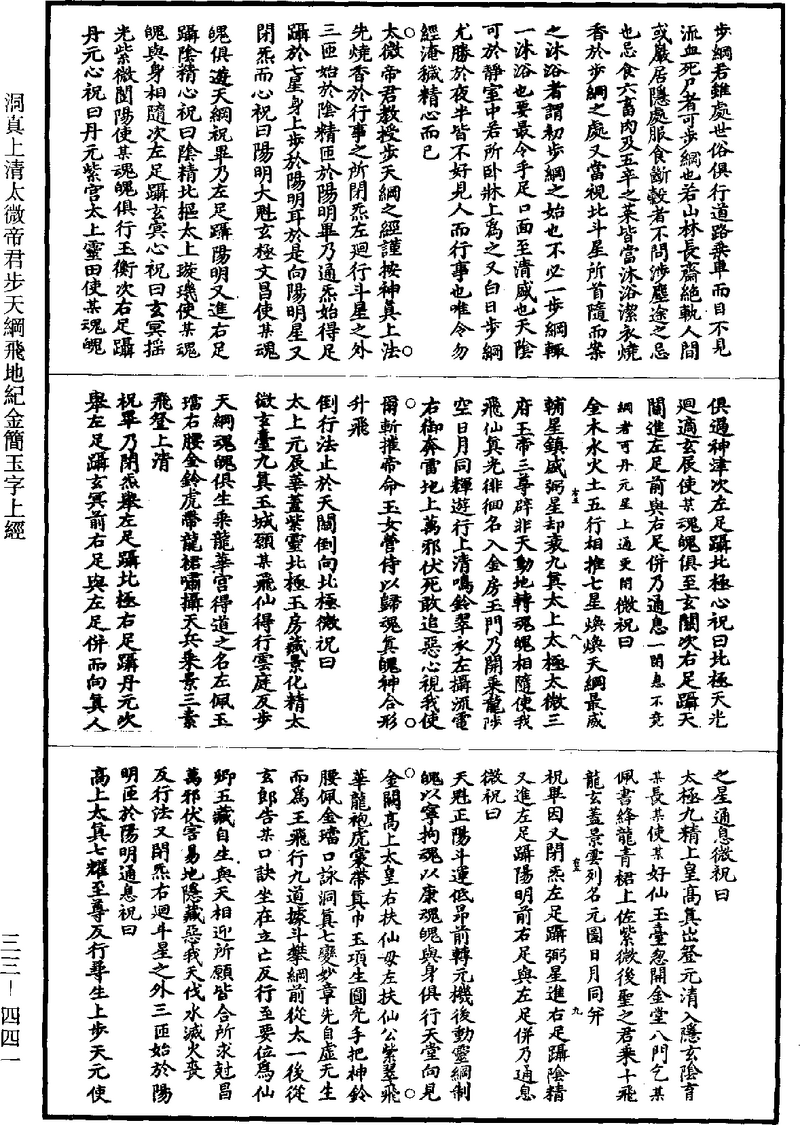 步綱若雖處世俗俱行道路乘車而目不見
流血死尸者可步綱也若山林長齋絕軌人間
或巖居隱處服食斷穀者不問涉塵途之忌
也忌食六畜肉及五辛之菜皆當沐浴潔衣燒
香於步綱之處又當視北斗星所首隨而案
之沐浴者謂初步綱之始也不必一步綱輒
一沐浴也要最令手足口面至清盛也天陰
可於靜室中若所臥牀上為之又白日步綱
尤勝於夜半皆不好見人而行事也唯令勿
經淹穢精心而已
太微帝君教授步天綱之經謹按神真上法
先燒香於行事之所閉炁左迴行斗星之外
三匝始於陰精匝於陽明畢乃通炁始得足
躡於七星身上步於陽明耳於是向陽明星又
閉炁而心祝曰陽明大魁玄極文昌使某魂
魄俱遊天綱祝畢乃左足躡陽明又進右足
躡陰精心祝曰陰精北樞太上璇璣使某魂
魄與身相隨次左足躡玄冥心祝曰玄冥搖
光紫微閶陽使某魂魄俱行玉衡次右足躡
丹元心祝曰丹元紫宮太上靈田使某魂魄
俱過神津次左足躡北極心祝曰北極天光
迴適玄辰使某魂魄俱至玄關次右足躡天
關進左足前與右足併乃通息一閉息不竟
綱者可丹元星上通更閉微祝曰
金木水火土五行相推七星煥煥天綱最威
輔星鎮盛弼星却衰九真太上太極太微三
府玉帝三尊辟非天動地轉魂魄相隨使我
飛仙真光徘徊名入金房玉門乃開乘龍陟
空日月同輝遊行上清鳴鈴翠衣左攝流電
右御奔雷地上萬邪伏死敢追惡心視我使
爾斬摧帝命玉女營侍以歸魂真魄神合形
升飛
倒行法止於天關倒向北極微祝曰
太上元辰華蓋紫靈北極玉房藏景化精太
微玄臺九真玉城願某飛仙得行雲庭反步
天綱魂魄俱生乘龍華宮得道之名左佩玉
璫右腰金鈴虎帶龍裙嘯攝天兵乘景三素
飛登上清
祝畢乃閉炁舉左足躡北極右足躡丹元次
舉左足躡玄冥前右足與左足併而向真人
之星通息微祝曰
太極九精上皇高真出登元清入隱玄陰育
某長某使某好仙玉臺忽開金堂八門乞某
佩書絳龍青裙上佐紫微後聖之君乘十飛
龍玄蓋景雲列名元圖日月同年
祝畢因又閉炁左足躡弼星進右足躡陰精
又進左足躡陽明前右足與左足併乃通息
微祝曰
天魁正陽斗運低昂前轉元機後動靈綱制
魄以寧拘魂以康魂魄與身俱行天堂向見
金闕高上太皇右扶仙母左扶仙公紫翠飛
華龍袍虎裳帶真巾玉項生圓光手把神鈴
腰佩金璫口詠洞真七變妙章先自虛无生
而為王飛行九道據斗攀綱前從太一後從
玄郎告某口訣坐在立亡反行至要位為仙
卿五藏自生與天相迎所願皆合所求尅昌
萬邪伏害易地隱藏惡我天伐水滅火喪
反行法又閉炁右迴斗星之外三匝始於陽
明匝於陽明通息祝曰
高上太真七耀至尊反行尋生上步天元使
洞真上清太微帝君步天綱飛地紀金簡玉字上經
三三－四四一